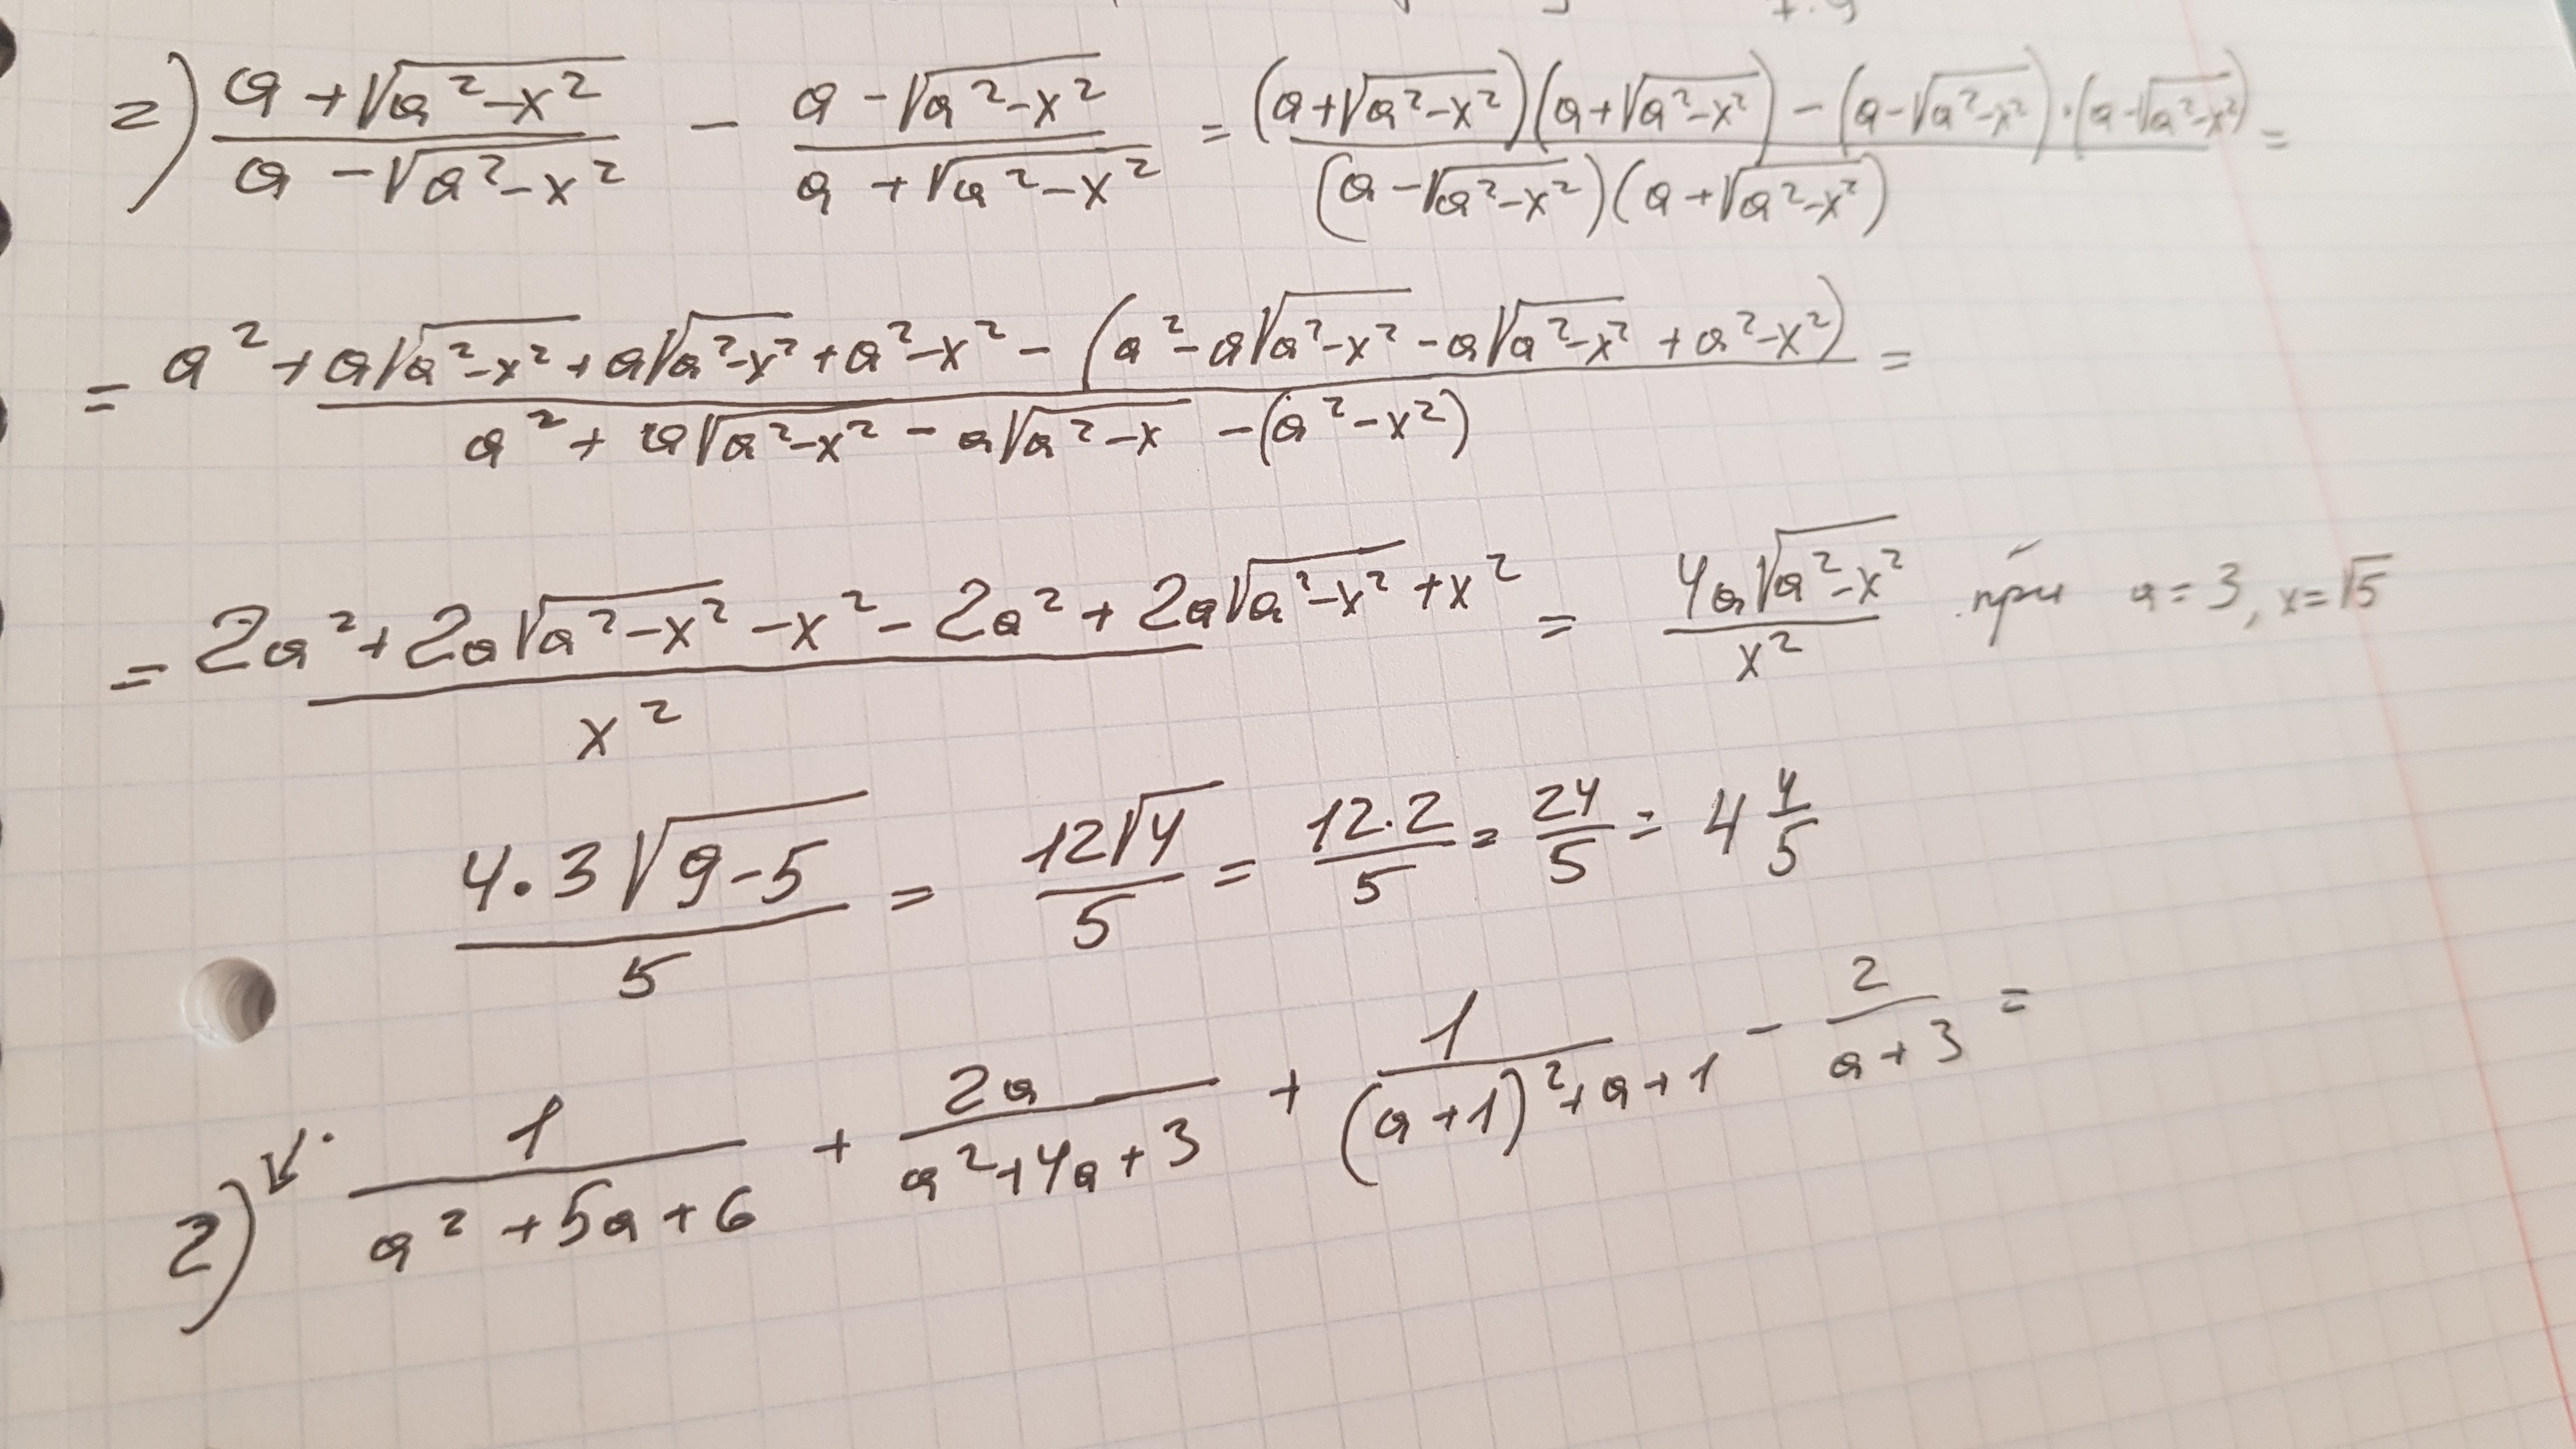 г) (a+√(a²-x²))/(a-√(a²-x²)) - (a-√(a²-x²))/(a+√(a²-x²)) = ((a+√(a²-x²))(a+√(a²-x²)) - (a-√(a²-x²))·(a-√(a²-x²)))/((a-√(a²-x²))(a+√(a²-x²))) =
= (a²+a√(a²-x²)+a√(a²-x²)+a²-x²-(a²-a√(a²-x²)-a√(a²-x²)+a²-x²))/(a²+a√(a²-x²)-a√(a²-x)-(a²-x²)) =
= (2a²+2a√(a²-x²)-x²-2a²+2a√(a²-x²)+x²)/x² = 4a√(a²-x²)/x² при a=3, x=√5
(4·3√(9-5))/5 = 12√4/5 = 12·2/5 = 24/5 = 4 4/5
2) 1/(a²+5a+6) + 2a/(a²+4a+3) + 1/((a+1)²+a+1) - 2/(a+3) =